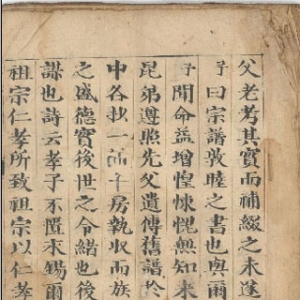 父老考其實而補綴之未遂
予曰宗譜敦睦之書也與爾
予聞命益增惶悚愧無知未
昆弟遵照先父遺傳舊譜於
中各抄一房執收而族
之盛德實後世之令緒也後
謀也詩云孝子不匱永錫爾
祖宗仁孝所致祖宗以仁孝